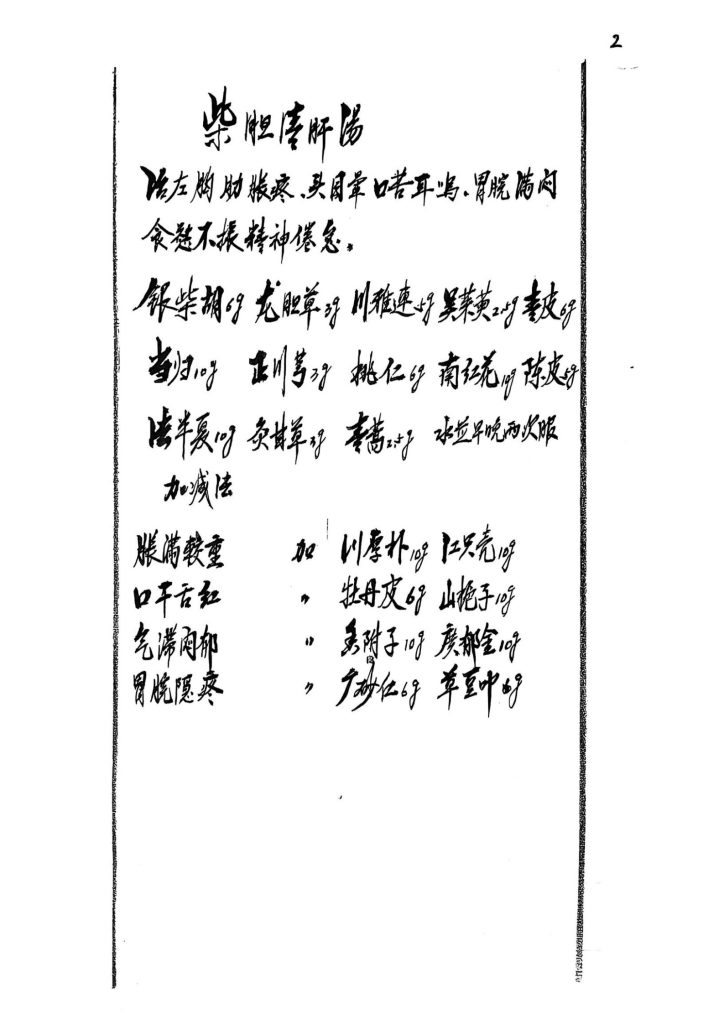 2
柴胆清肝湯
治左胸肋胀疼、头目晕口苦耳鸣、胃脘满闷
食慾不振精神倦怠。
银柴胡6g 龙胆草3g 川雅連5g 吴茱萸2.5g 青皮6g
当归10g 正川芎3g 桃仁6g 南红花10g 陈皮5g
法半夏10g 灸甘草3g 青蒿2.5g 水煎早晚两次服
加减法
胀满较重 加 川厚朴10g 江只壳10g
口干舌红 〃 牡丹皮6g 山栀子10g
气滞闷郁 〃 香附子10g 廣郁金10g
胃脘隐疼 〃 广砂仁6g 草豆叩6g